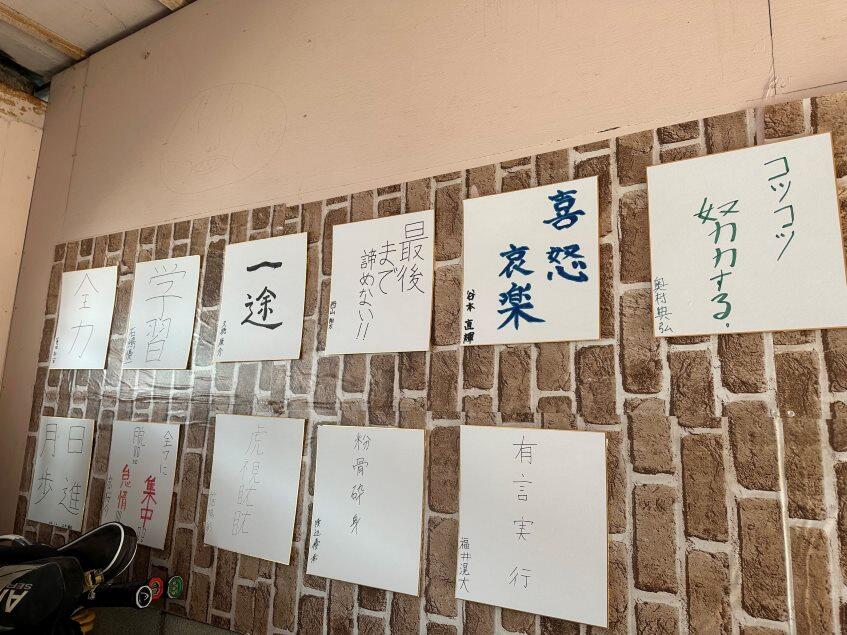 全力
学習
一途
最後
まで
諦めない!!
喜怒
哀楽
谷本 直輝
コツコツ
努力する.
奥村典弘
日進
月歩
集中
怠惰
虎視眈眈
粉骨砕身
有言実行
福井滉大